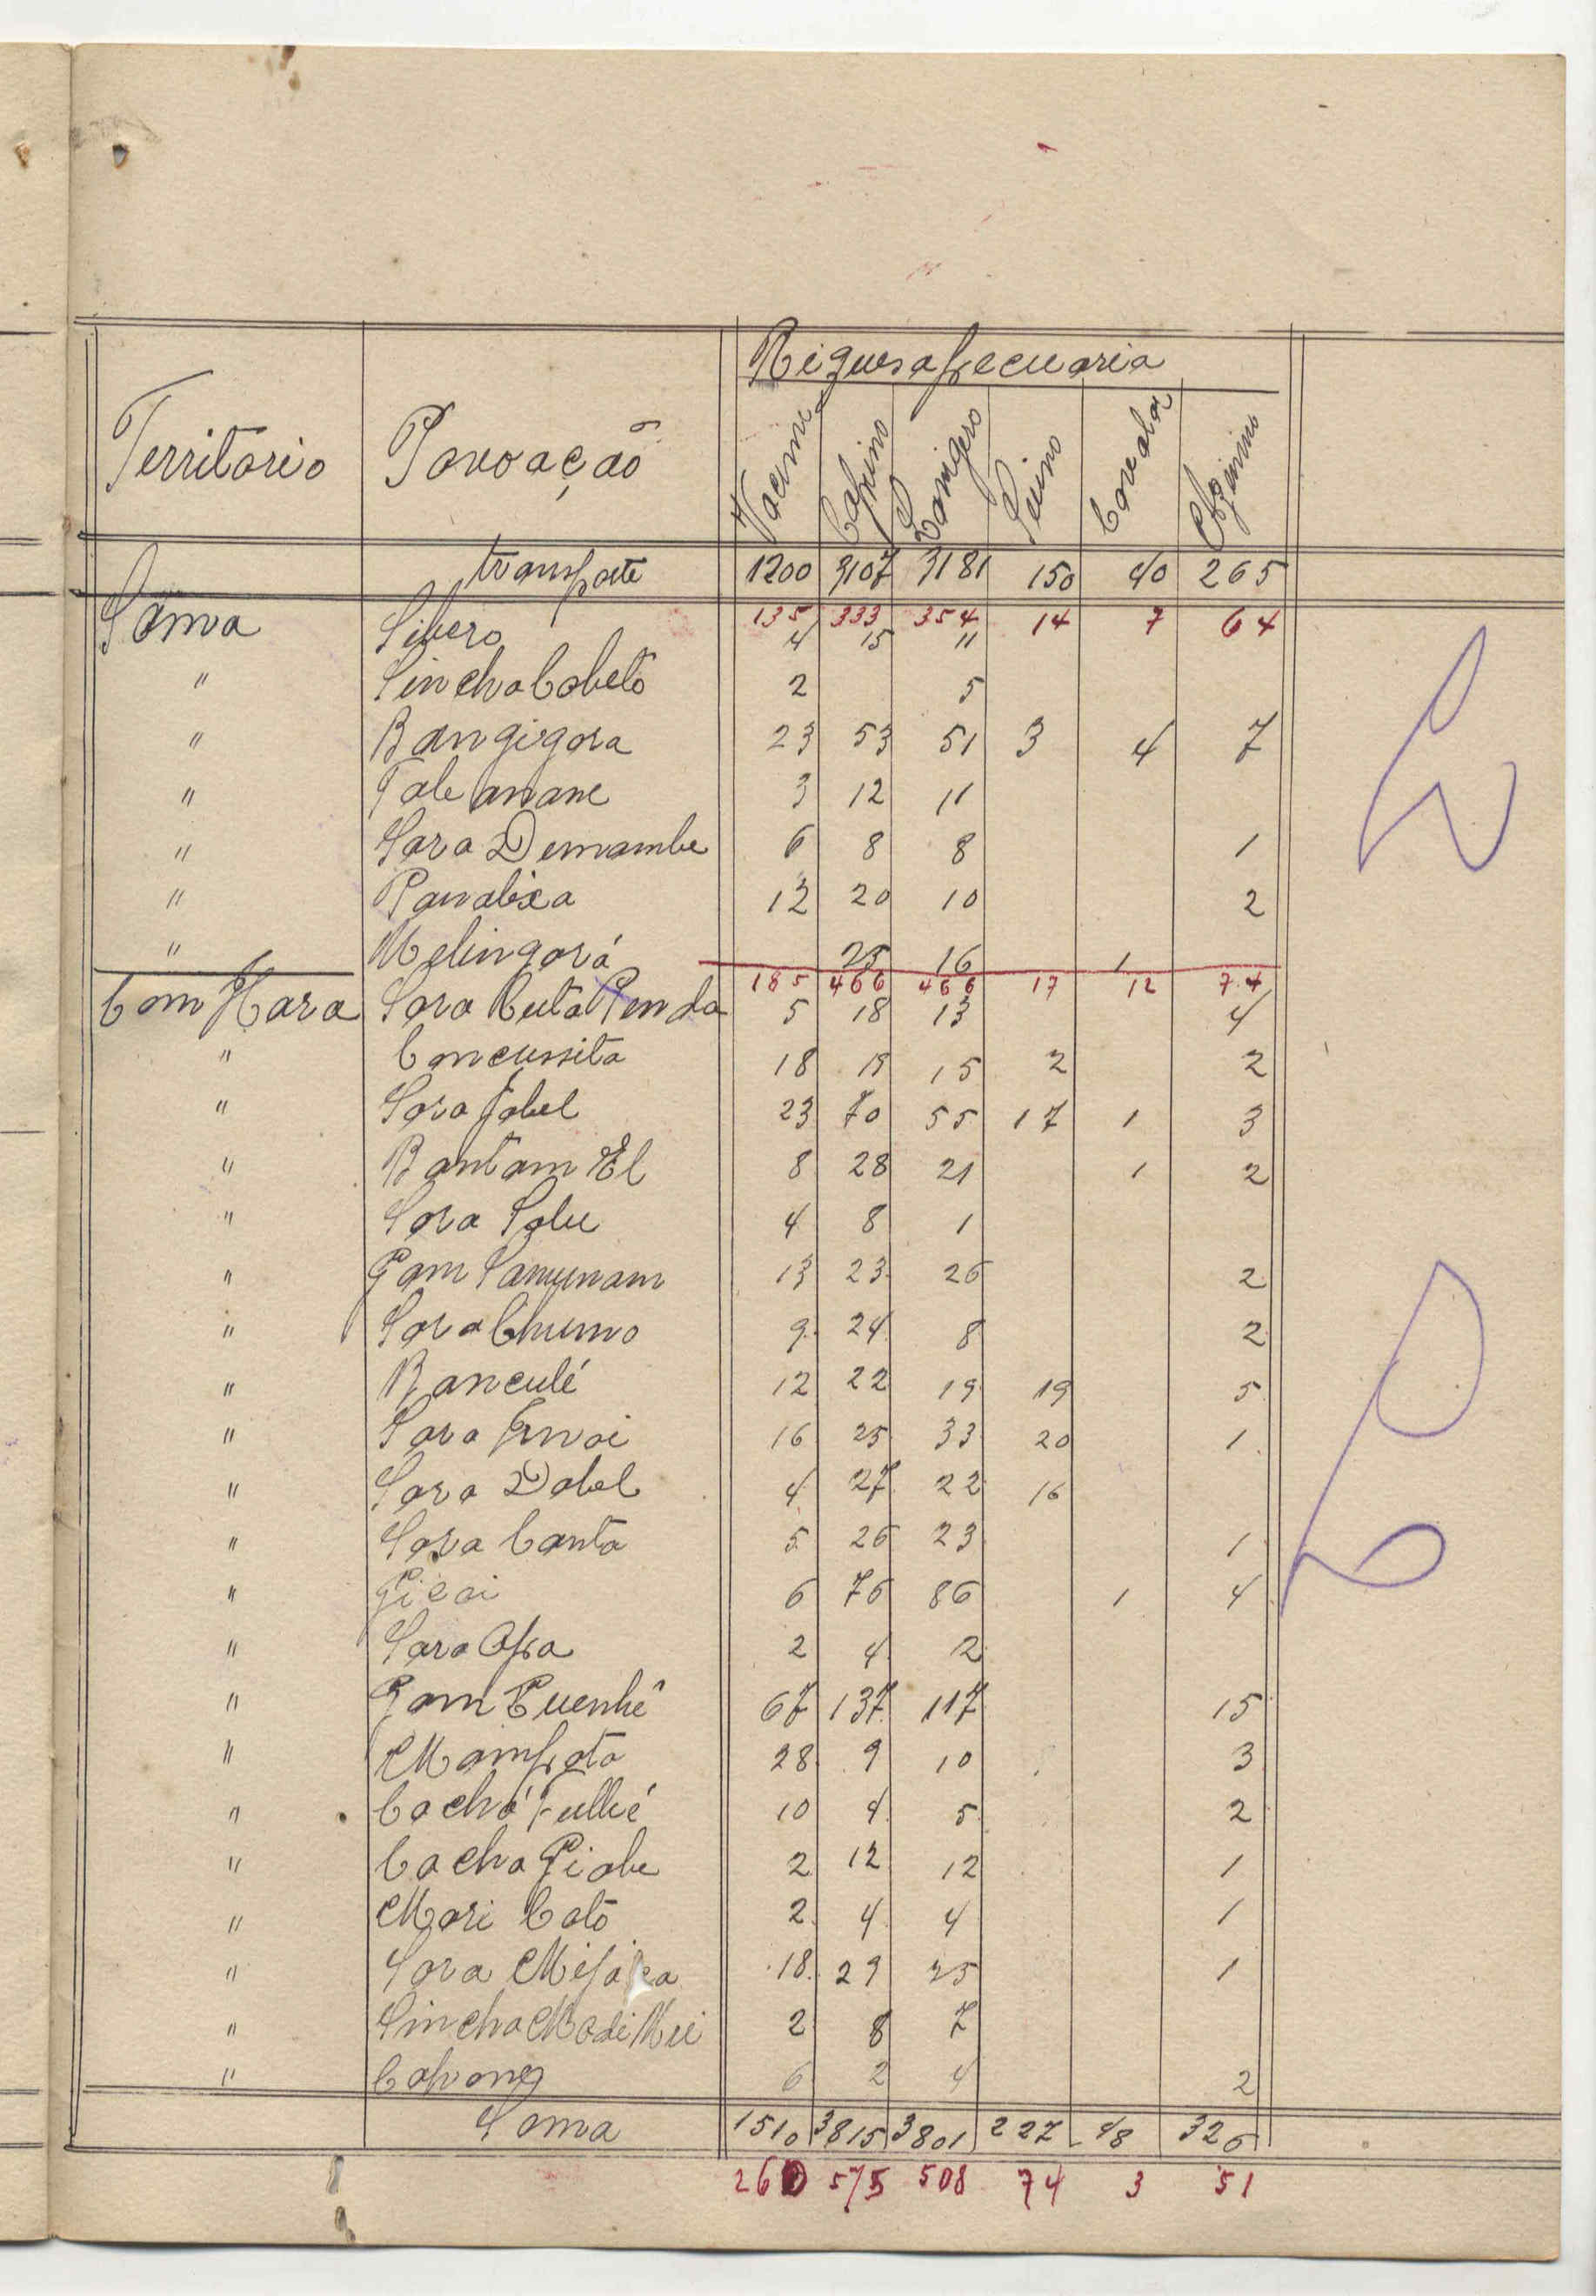 Riquesa pecuaria
Territorio Povoação Vacum Caprino Lanigero Suino Cavalar Azinino
transporte 1200 3107 3181 150 40 265
135 333 354 14 7 64
Sama Sibero 4 15 11
" Sincha Cobeto 2 5
" Bangigora 23 53 51 3 4 7
" Tabanane 3 12 11
" Sara Demambe 6 8 8 1
" Panabixa 12 20 10 2
" Melingorá 25 16 1
185 466 466 17 12 74
Com Hara Sara Cuta Penda 5 18 13 4
" Concunsita 18 19 15 2 2
" Sara Jobel 23 70 55 17 1 3
" Bantam El 8 28 21 1 2
" Sara Solu 4 8 1
" Gam Samunam 13 23 26 2
" Sara Chumo 9 24 8 2
" Banculé 12 22 19 19 5
" Sara 16 25 33 20 1
" Sara Dabel 4 27 22 16
" Sara Canta 5 26 23 1
" 6 76 86 1 4
" Sara Apa 2 4 2
" Gam Cuenhê 67 137 117 15
" Mampata 28 9 10 3
" Cachá Fullié 10 4 5 2
" Cacha Giabe 2 12 12 1
" Mari Coto 2 4 4 1
" Sara 18 29 25 1
" Sincha Madi 2 8 7
" 6 2 4 2
Soma 1510 3815 3801 227 48 326
260 575 508 74 3 51